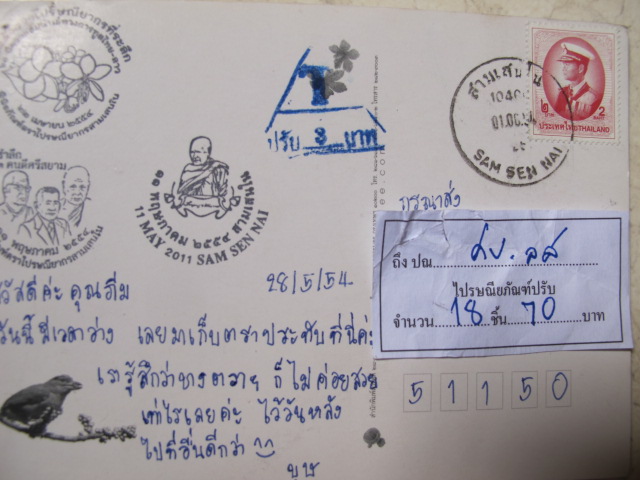 ๒๑ เมษายน ๒๕๕๔
ปรับ 3 บาท
สามเสนใน
SAM SEN NAI
๒ บาท 2
ประเทศไทย THAILAND
๑๑ พฤษภาคม ๒๕๕๔ สามเสนใน
11 MAY 2011 SAM SEN NAI
คนดีศรีสยาม
พฤษภาคม ๒๕๕๔
กรุณาส่ง
ถึง ปณ. ศป. ลส
ไปรษณียภัณฑ์ปรับ
จำนวน 18 ชิ้น 70 บาท
51150
28/5/54
วัสดีค่ะ คุณภีม
วันนี้ มีเวลาว่าง เลยมาเก็บตราประทับ ที่นี่ค่ะ
เรารู้สึกว่าบางตราฯ ก็ไม่ค่อยสวย
เท่าไรเลยค่ะ ไว้วันหลัง
ไปที่อื่นดีกว่า